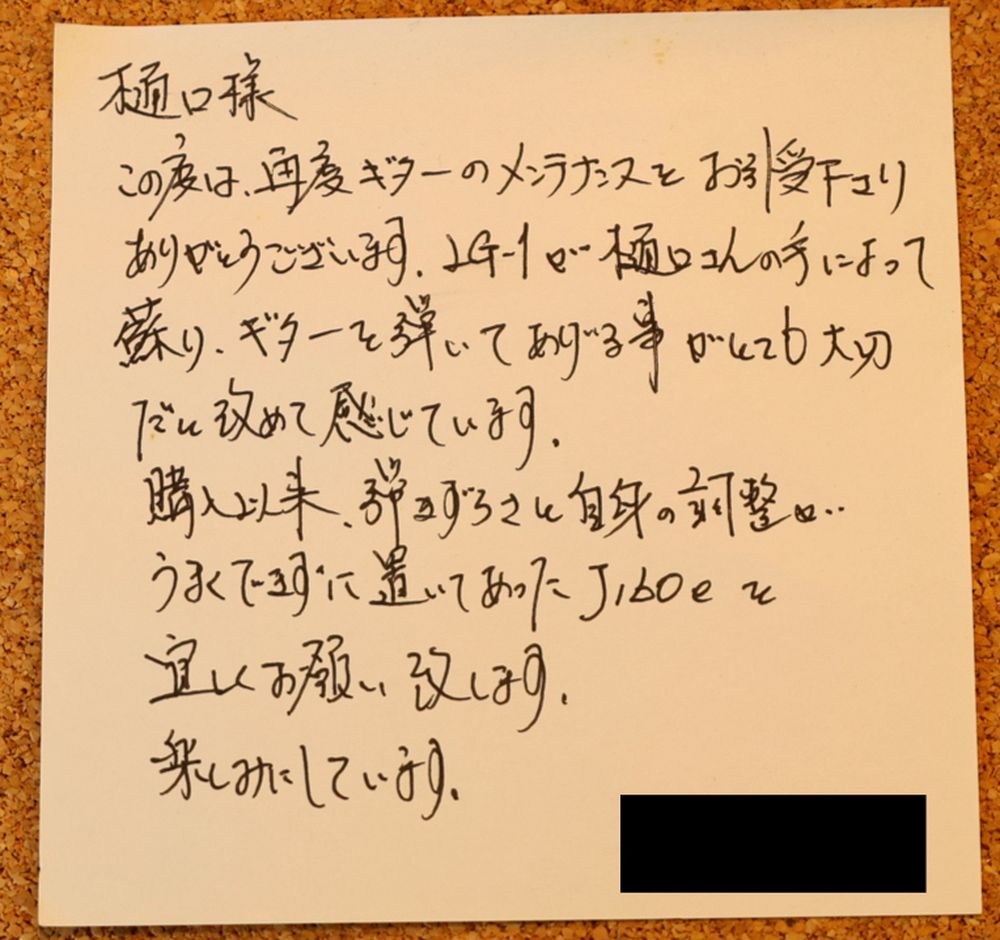 樋口様
この度は、再度ギターのメンテナンスをお引受下さり
ありがとうございます。LG-1が樋口さんの手によって
蘇り、ギターを弾いてあげる事がとても大切
だと改めて感じています。
購入以来、弾きずらさと自身の調整が‥
うまくできずに置いてあったJ160eを
宜しくお願い致します。
楽しみにしています。